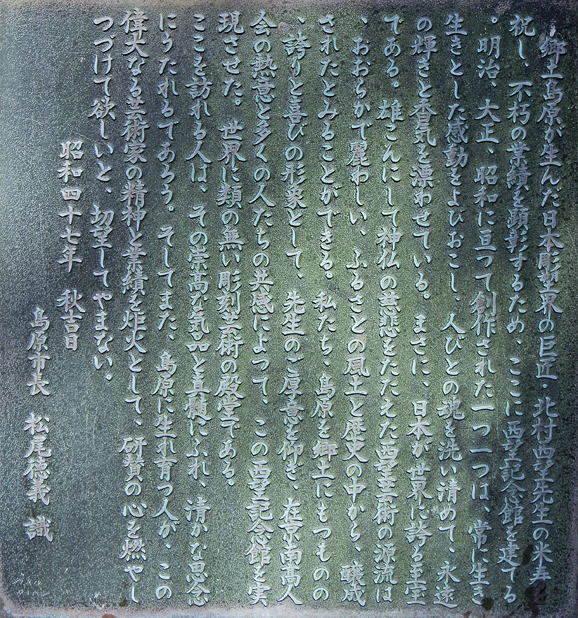 郷土島原が生んだ日本彫塑界の巨匠・北村西望先生の米寿を
祝し、不朽の業績を顕彰するため、ここに西望記念館を建てる
。明治、大正、昭和に亘って創作された一つ一つは、常に生き
生きとした感動をよびおこし、人びとの魂を洗い清めて、永遠
の輝きと香気を漂わせている。まさに、日本が世界に誇る至宝
である。雄こんにして神仏の慈悲をたたえた西望芸術の源流は
、おおらかで麗わしい、ふるさとの風土と歴史の中から、醸成
されたとみることができる。私たち、島原を郷土にもつものの
、誇りと喜びの形象として、先生のご厚意を仰ぎ、在京南高人
会の熱意と多くの人たちの共感によって、この西望記念館を実
現させた。世界に類の無い彫刻芸術の殿堂である。
ここを訪れる人は、その崇高な気品と真髄にふれ、清かな思念
にうたれるであろう。そしてまた、島原に生れ育つ人が、この
偉大なる芸術家の精神と業績を炬火として、研賛の心を燃やし
つづけて欲しいと、切望してやまない。
昭和四十七年　秋吉日
島原市長　松尾徳義　識